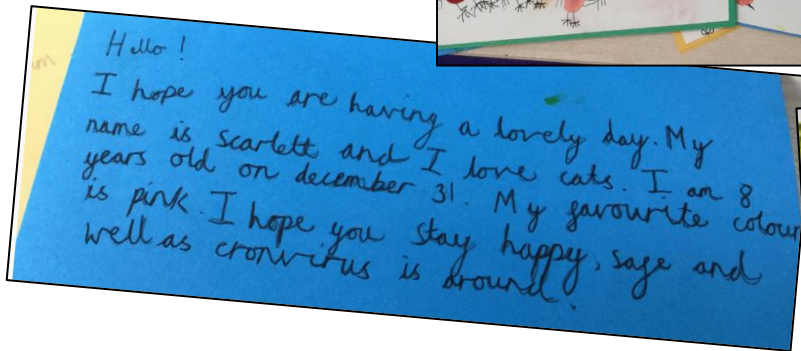 Hello!
I hope you are having a lovely day. My
name is Scarlett and I love cats. I am 8
years old on december 31. My favourite colour
is pink. I hope you stay happy, safe and
well as cronvirus is around.